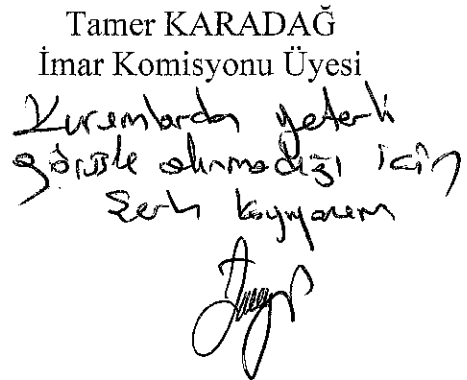 Tamer KARADAĞ
İmar Komisyonu Üyesi
Kurumlardan yeterli
görüşle alınmadığı için
Şerh koyuyorum